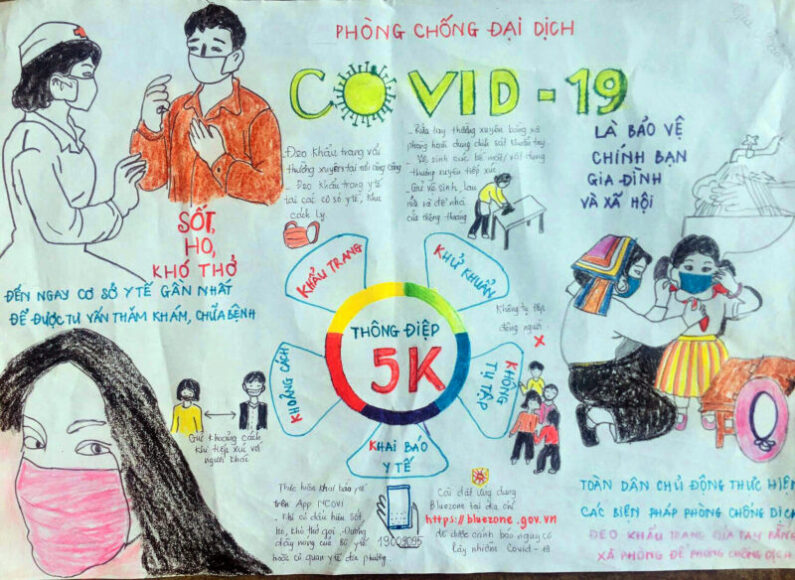 PHÒNG CHỐNG ĐẠI DỊCH
COVID - 19
Đeo khẩu trang vải
thường xuyên tại nơi công cộng
- Đeo khẩu trang y tế
tại các cơ sở y tế, khu
cách ly
- Rửa tay thường xuyên bằng xà
phòng hoặc dung dịch sát khuẩn tay
- Vệ sinh các bề mặt/ vật dụng
thường xuyên tiếp xúc
- Giữ vệ sinh, lau
rửa và để nhà
cửa thông thoáng
LÀ BẢO VỆ
CHÍNH BẠN
GIA ĐÌNH
VÀ XÃ HỘI
SỐT,
HO,
KHÓ THỞ
ĐẾN NGAY CƠ SỞ Y TẾ GẦN NHẤT
ĐỂ ĐƯỢC TƯ VẤN THĂM KHÁM, CHỮA BỆNH
KHẨU TRANG
KHỬ KHUẨN
THÔNG ĐIỆP
5K
KHOẢNG CÁCH
KHÔNG
TỤ TẬP
KHAI BÁO
Y TẾ
Không tụ tập
đông người
Giữ khoảng cách
khi tiếp xúc với
người khác
Thực hiện khai báo y tế
trên App NCOVI
- Khi có dấu hiệu sốt,
ho, khó thở gọi đường
dây nóng của Bộ y tế
hoặc cơ quan y tế địa phương
19009095
Cài đặt ứng dụng
Bluezone tại địa chỉ
https://bluezone.gov.vn
để được cảnh báo nguy cơ
lây nhiễm Covid - 19
TOÀN DÂN CHỦ ĐỘNG THỰC HIỆN
CÁC BIỆN PHÁP PHÒNG CHỐNG DỊCH
ĐEO KHẨU TRANG TAY BẰNG
XÀ PHÒNG ĐỂ PHÒNG CHỐNG DỊCH